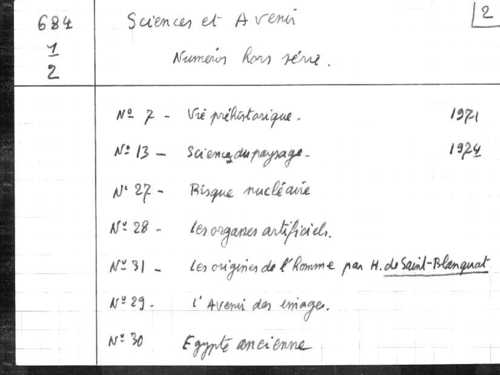 684
1
2
Sciences et Avenir
Numéros hors série.
2
Nº 7 - Vie préhistorique. 1971
Nº 13 - Sciences du paysage. 1974
Nº 27 - Risque nucléaire
Nº 28 - Les organes artificiels.
Nº 31 - Les origines de l'homme par H. de Saint-Blanquat
Nº 29 - l'Avenir des images.
Nº 30 Egypte ancienne